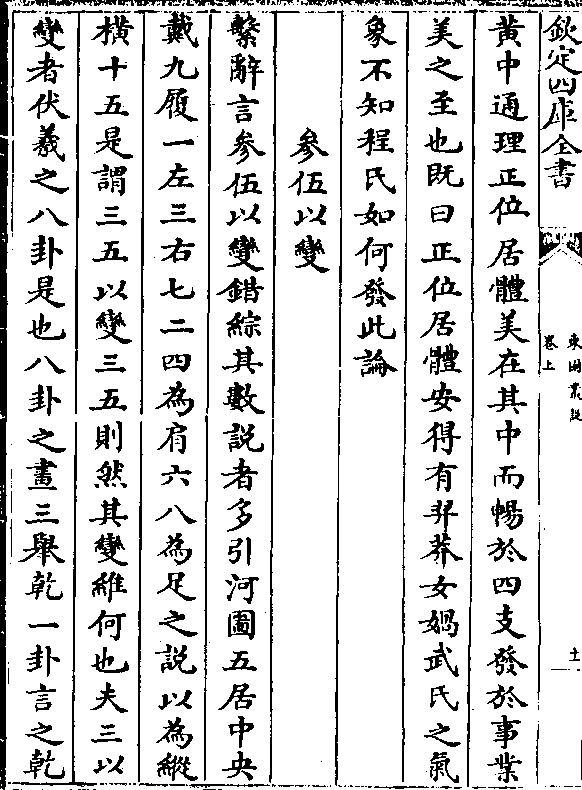 欽定四庫全書
東園叢說
卷上
土
黃中通理正位居體美在其中而暢於四支發於事業
美之至也既曰正位居體安得有羿莽女媧武氏之氣
象不知程氏如何發此論
參伍以變
繫辭言參伍以變錯綜其數說者多引河圖五居中央
戴九履一左三右七二四為肩六八為足之說以為縱
橫十五是謂三五以變三五則然其變維何也夫三以
變者伏羲之八卦是也八卦之畫三舉乾一卦言之乾